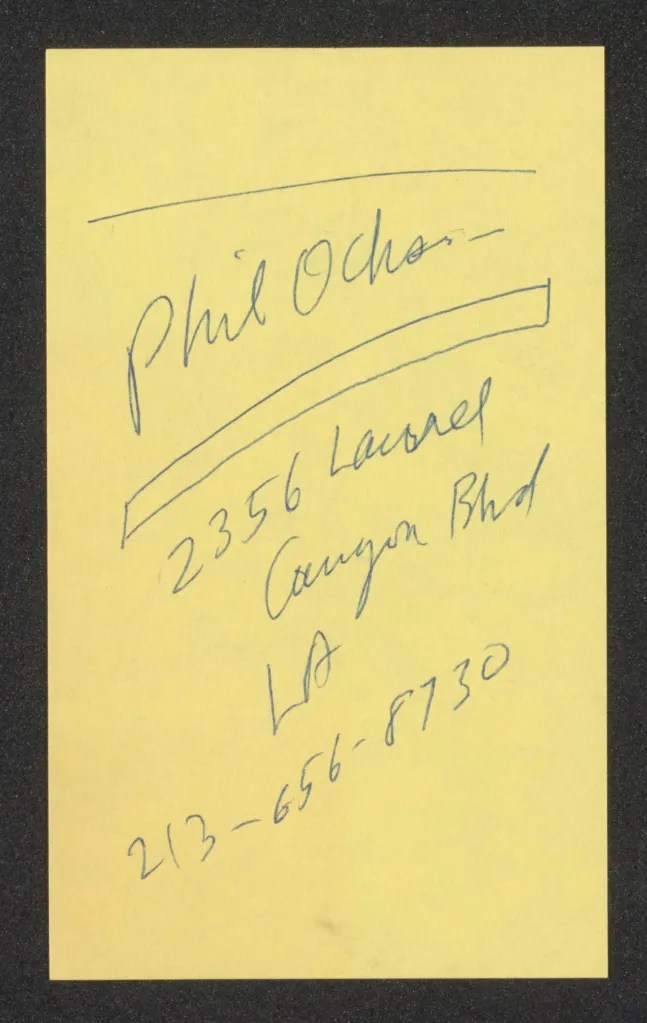 Phil Ochs
2356 Laurel
Canyon Blvd
LA
213-656-8730